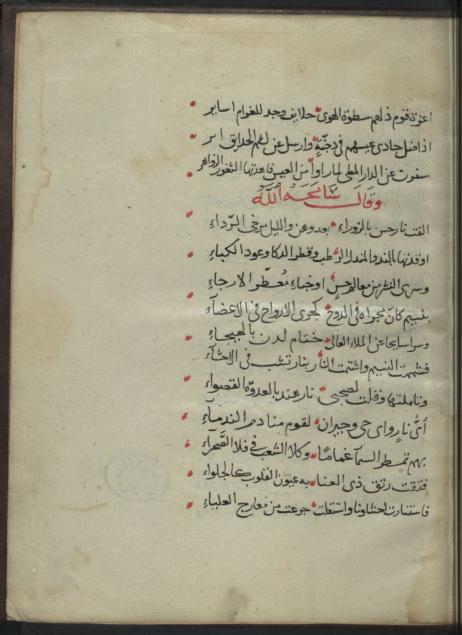 اعزة قوم ذلهم سطوة الهوى حلايف وجد للغرام اساير
اذا ضل حادى عيسهم فى دجنة وارسل عن لثم الحدايق
سفرت عن الدار الثغور الزواهر
وقال سامحه الله
الفت نار حسن بالزوراء بعد وهن والليل مرخى الرداء
اوقدتها بالند والمندل الرطب وقطر الذكا وعود الكباء
وسرى النشر من معالم حسن او خباء معطر الارجاء
بنسيم كان مجراه فى الدوح كجرى الارواح فى الاعضاء
وسرا سابحا عن الملاء العالى ختام لدن بالهيجاء
فشممت النسيم واشتمت النار بنار تشب فى الاحشاء
وتاملتها وقلت لصحبى نار هند بالعدوة القصواء
اى نار واى حى وجيران لقوم منادم الندماء
بهم تمطر السما غماما وكلا الشعب فى فلا الصحراء
فتقت رتق ذى العنا به عيون القلوب كالجلواء
فاستنارت احشاونا واشتعلت جرعت من معارج العلياء